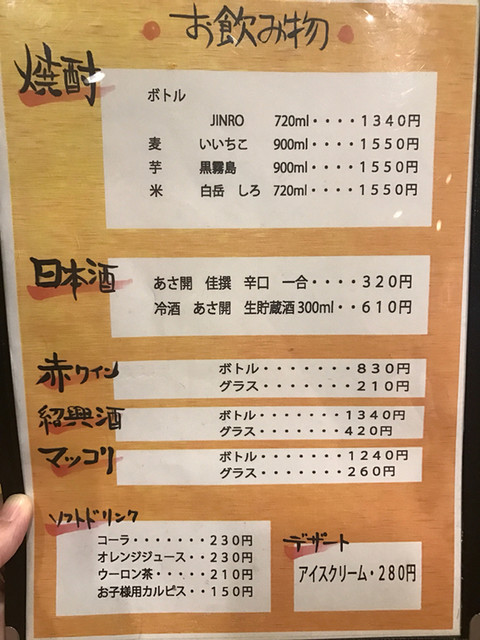 お飲み物
焼酎
ボトル
JINRO 720ml・・・・1340円
麦 いいちこ 900ml・・・・1550円
芋 黒霧島 900ml・・・・1550円
米 白岳 しろ 720ml・・・・1550円
日本酒
あさ開 佳撰 辛口 一合・・・・320円
冷酒 あさ開 生貯蔵酒300ml・・610円
赤ワイン
ボトル・・・・・・・830円
グラス・・・・・・・210円
紹興酒
ボトル・・・・・・・1340円
グラス・・・・・・・420円
マッコリ
ボトル・・・・・・・1240円
グラス・・・・・・・260円
ソフトドリンク
コーラ・・・・・・・230円
オレンジジュース・・230円
ウーロン茶・・・・・210円
お子様用カルピス・・150円
デザート
アイスクリーム・280円